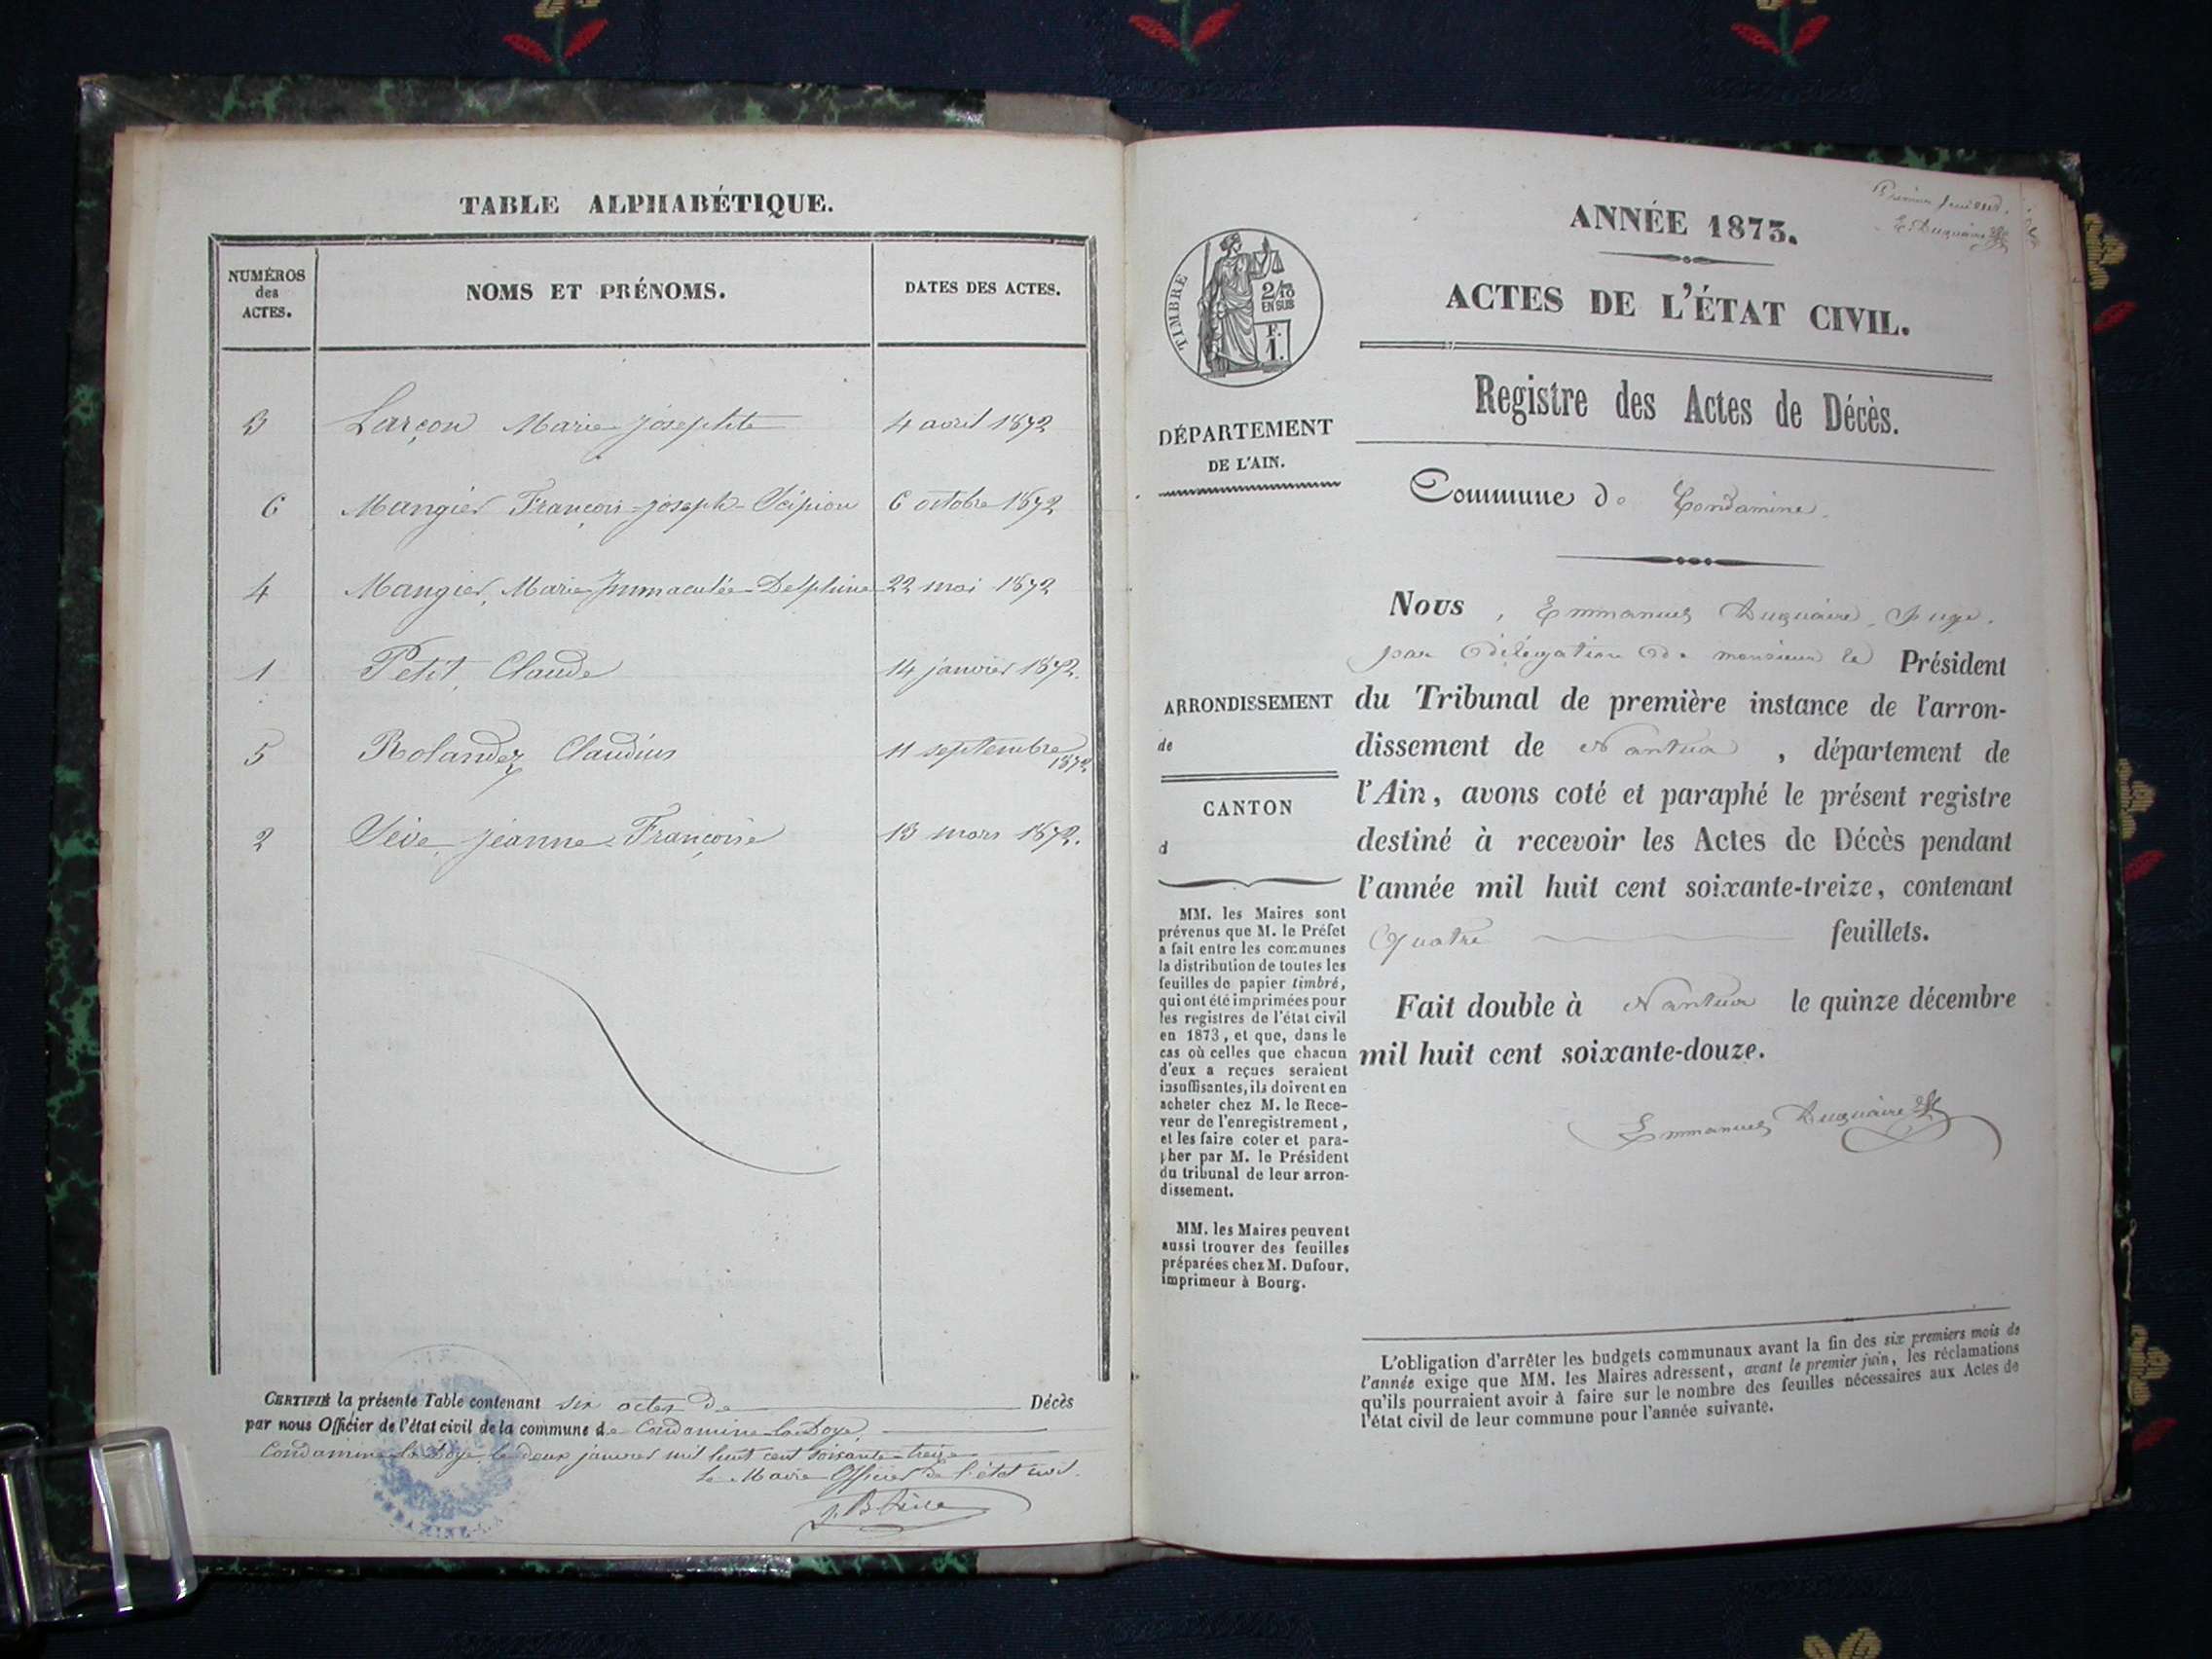 TABLE ALPHABÉTIQUE.
NUMÉROS
des
ACTES.
NOMS ET PRÉNOMS.
DATES DES ACTES.
3 Larçon Marie Josephte 4 avril 1872
6 Mangier François-joseph-Scipion 6 octobre 1872
4 Mangier, Marie Immaculée-Delphine 22 mai 1872
1 Petit, Claude 14 janvier 1872.
5 Rolandez Claudius 11 septembre
1872
2 Sève, jeanne-Françoise 13 mars 1872.
CERTIFIÉ la présente Table contenant six actes de Décès
par nous Officier de l'état civil de la commune de Condamine-la-Doye.
Condamine-la-Doye, le deux janvier mil huit cent soixante-treize
Le Maire Officier de l'état civil.
Premier feuillet.
E. Duquaire
ANNÉE 1873.
ACTES DE L'ÉTAT CIVIL.
Registre des Actes de Décès.
TIMBRE
2/10
EN SUS
F.
1.
DÉPARTEMENT
DE L'AIN.
Commune de Condamine.
Nous, Emmanuel Duquaire, Juge,
par délégation de monsieur le Président
du Tribunal de première instance de l'arron-
dissement de Nantua, département de
l'Ain, avons coté et paraphé le présent registre
destiné à recevoir les Actes de Décès pendant
l'année mil huit cent soixante-treize, contenant
Quatre feuillets.
Fait double à Nantua le quinze décembre
mil huit cent soixante-douze.
Emmanuel Duquaire
ARRONDISSEMENT
de
CANTON
d
MM. les Maires sont
prévenus que M. le Préfet
a fait entre les communes
la distribution de toutes les
feuilles de papier timbré,
qui ont été imprimées pour
les registres de l'état civil
en 1873, et que, dans le
cas où celles que chacun
d'eux a reçues seraient
insuffisantes, ils doivent en
acheter chez M. le Rece-
veur de l'enregistrement,
et les faire coter et para-
pher par M. le Président
du tribunal de leur arron-
dissement.
MM. les Maires peuvent
aussi trouver des feuilles
préparées chez M. Dufour,
imprimeur à Bourg.
L'obligation d'arrêter les budgets communaux avant la fin des six premiers mois de
l'année exige que MM. les Maires adressent, avant le premier juin, les réclamations
qu'ils pourraient avoir à faire sur le nombre des feuilles nécessaires aux Actes de
l'état civil de leur commune pour l'année suivante.